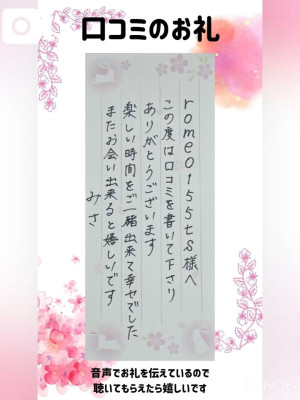 口コミのお礼
romeo155ts様へ
この度は口コミを書いて下さり
ありがとうございます
楽しい時間をご一緒出来て幸せでした
またお会い出来ると嬉しいです
みさ
音声でお礼を伝えているので
聴いてもらえたら嬉しいです